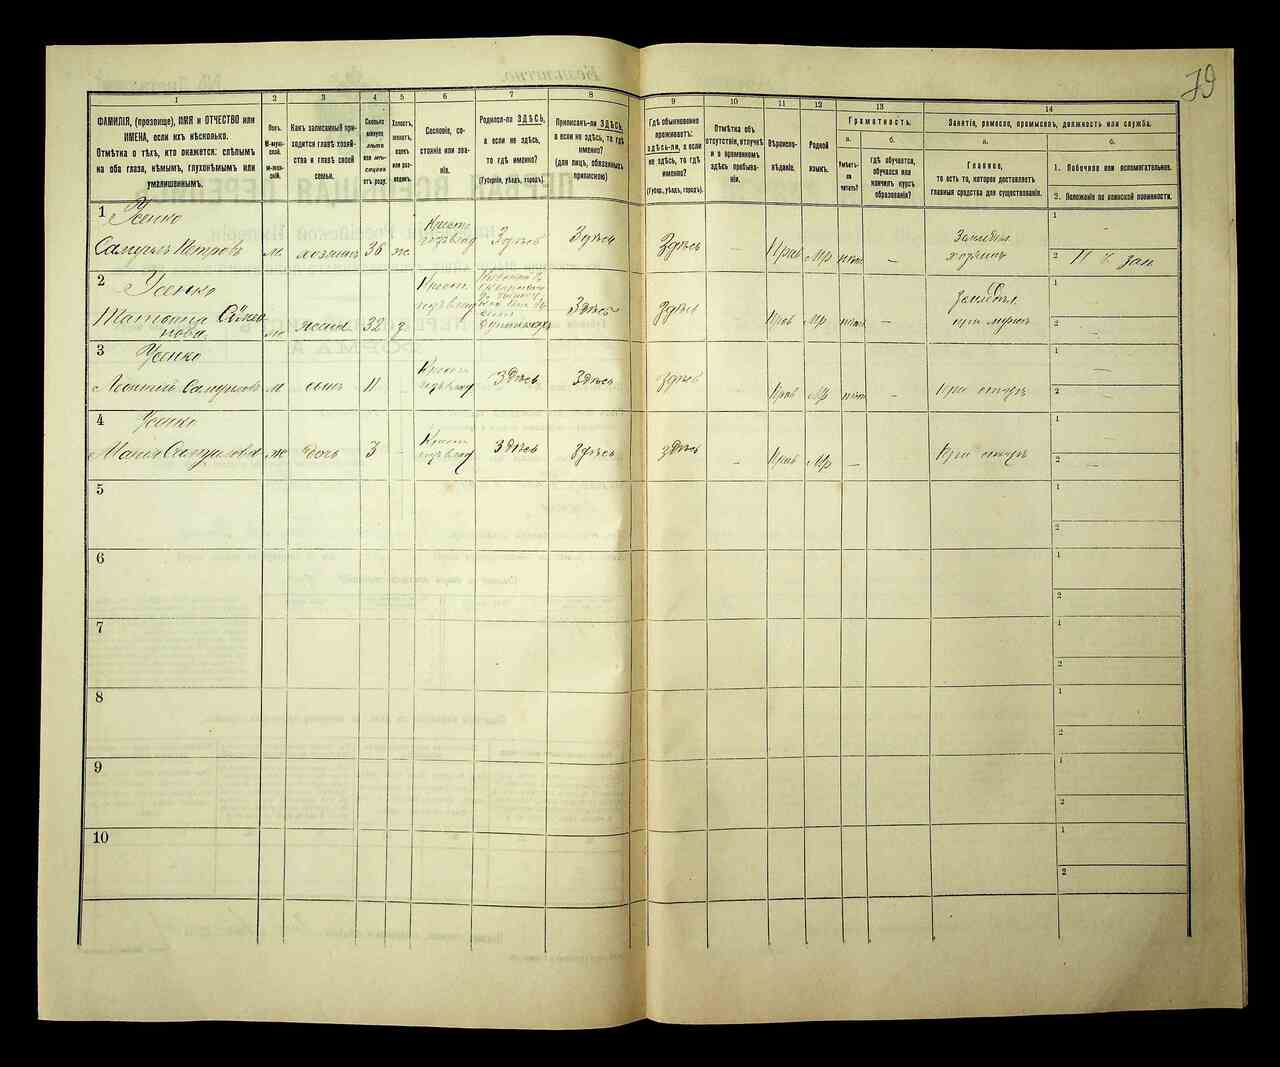 79
1
2
3
4
5
6
7
8
9
10
11
12
13
14
ФАМИЛІЯ, (прозвище), ИМЯ и ОТЧЕСТВО или
ИМЕНА, если ихъ нѣсколько.
Отмѣтка о тѣхъ, кто окажется: слѣпымъ
на оба глаза, нѣмымъ, глухонѣмымъ или
умалишеннымъ.
Полъ.
М-муж-
ской.
Ж-жен-
скій.
Какъ записанный при-
ходится главѣ хозяй-
ства и главѣ своей
семьи.
Сколько
минуло
лѣтъ
или мѣ-
сяцевъ
отъ роду.
Холостъ,
женатъ,
вдовъ
или раз-
веденъ.
Сословіе, со-
стояніе или зва-
ніе.
Родился-ли ЗДѢСЬ,
а если не здѣсь,
то гдѣ именно?
(Губернія, уѣздъ, городъ).
Приписанъ-ли ЗДѢСЬ,
а если не здѣсь, то гдѣ
именно?
(для лицъ, обязанныхъ
припискою)
Гдѣ обыкновенно
проживаетъ:
здѣсь-ли, а если
не здѣсь, то гдѣ
именно?
(Губер., уѣздъ, городъ).
Отмѣтка объ
отсутствіи, отлучкѣ
и о временномъ
здѣсь пребыва-
ніи.
Вѣроиспо-
вѣданіе.
Родной
языкъ.
Грамотность.
а.
б.
Умѣетъ-
ли
читать?
Гдѣ обучается,
обучался или
кончилъ курсъ
образованія?
Занятіе, ремесло, промыселъ, должность или служба.
а.
б.
Главное,
то есть то, которое доставляетъ
главныя средства для существованія.
1. Побочное или вспомогательное.
2. Положеніе по воинской повинности.
1 Усенко
Самуилъ Петровъ м хозяинъ 36 ж Крест. Здѣсь Здѣсь Здѣсь - Прав Мр нѣтъ - хозяинъ
1 -
2
2 Усенко
Татьяна ж жена 32 Крест. Здѣсь Здѣсь - Прав Мр нѣтъ при мужѣ
1 -
2 -
3 Усенко
м сынъ 11 - Крест. Здѣсь Здѣсь Здѣсь Прав Мр нѣтъ - При отцѣ
1 -
2 -
4 Усенко
Марія Самуилова ж дочь 3 - Крест. Здѣсь Здѣсь Здѣсь - Прав Мр - При отцѣ
1 -
2 -
5
1
2
6
1
2
7
1
2
8
1
2
9
1
2
10
1
2